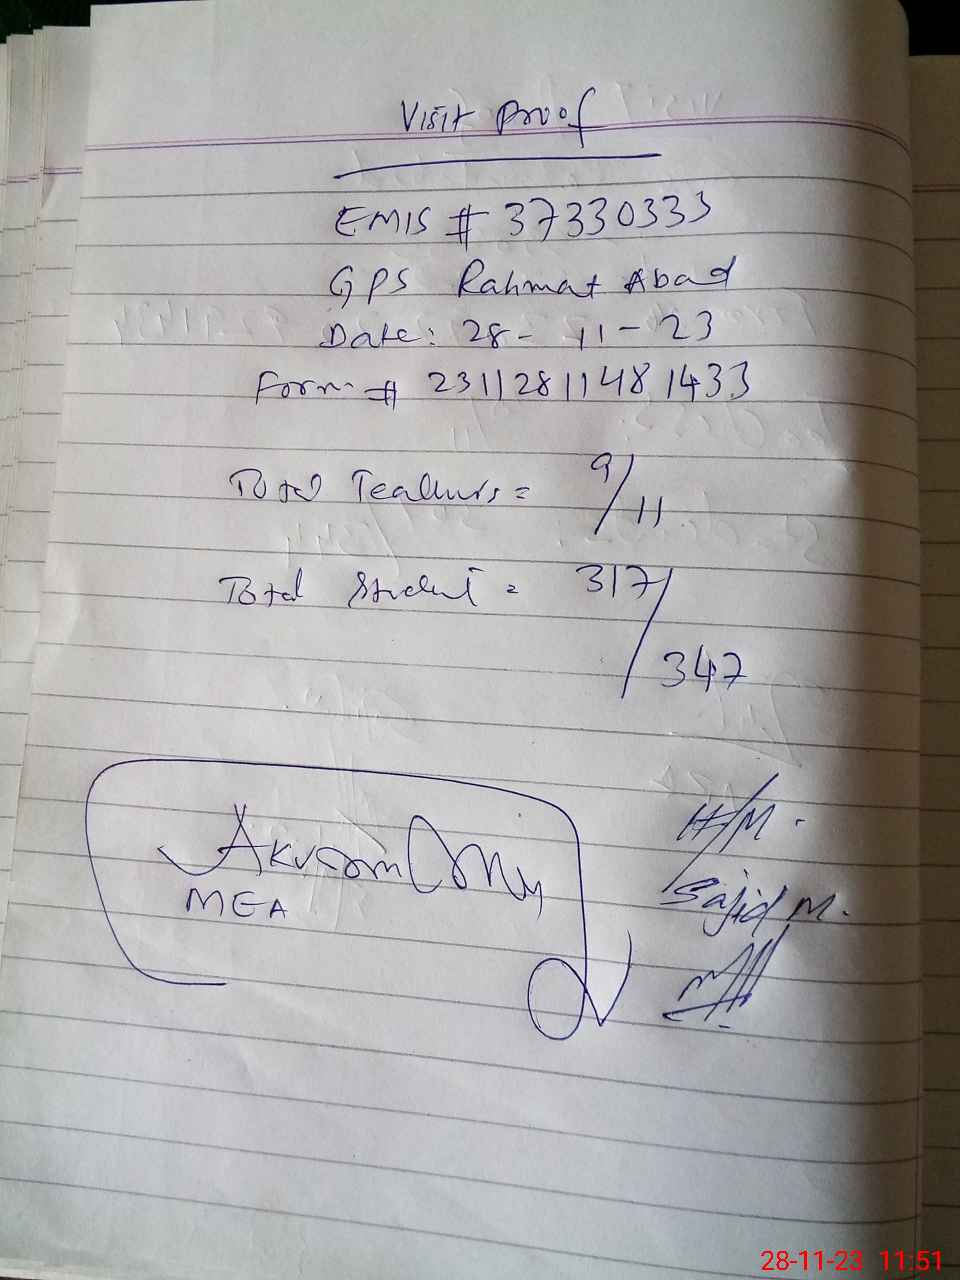 Visit Proof
EMIS # 37330333
GPS Rahmat Abad
Date: 28-11-23
Form # 231128114481433
Total Teachers = 9/11
Total Student = 317/347
Akram
MEA
H/M.
Sajid M.
28-11-23 11:51